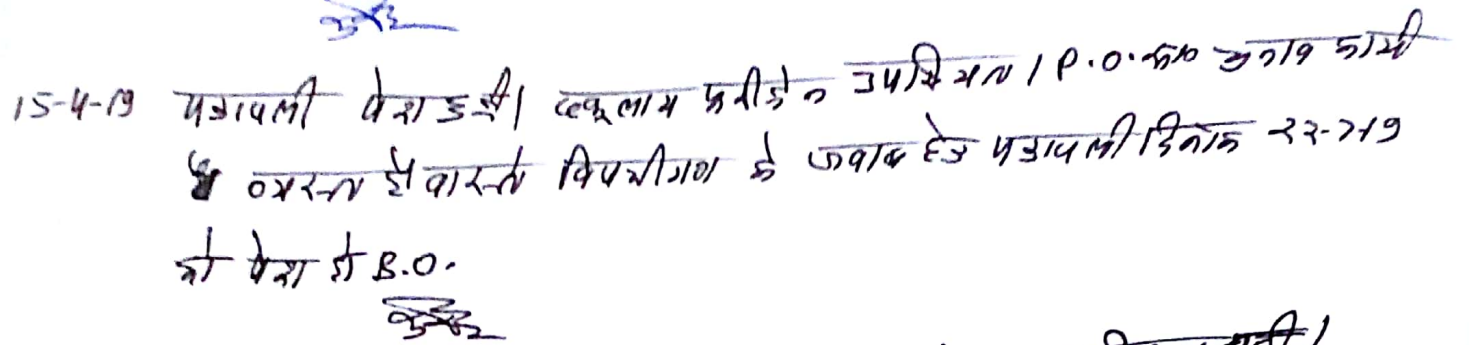 15-4-19 पत्रावली पेश हुई। वकूलाय फरीकेन उपस्थित। P.O. चुनाव कार्य
में व्यस्त है वास्ते विपक्षीगण के जवाब हेतु पत्रावली दिनांक 22-7-19
को पेश हो B.O.